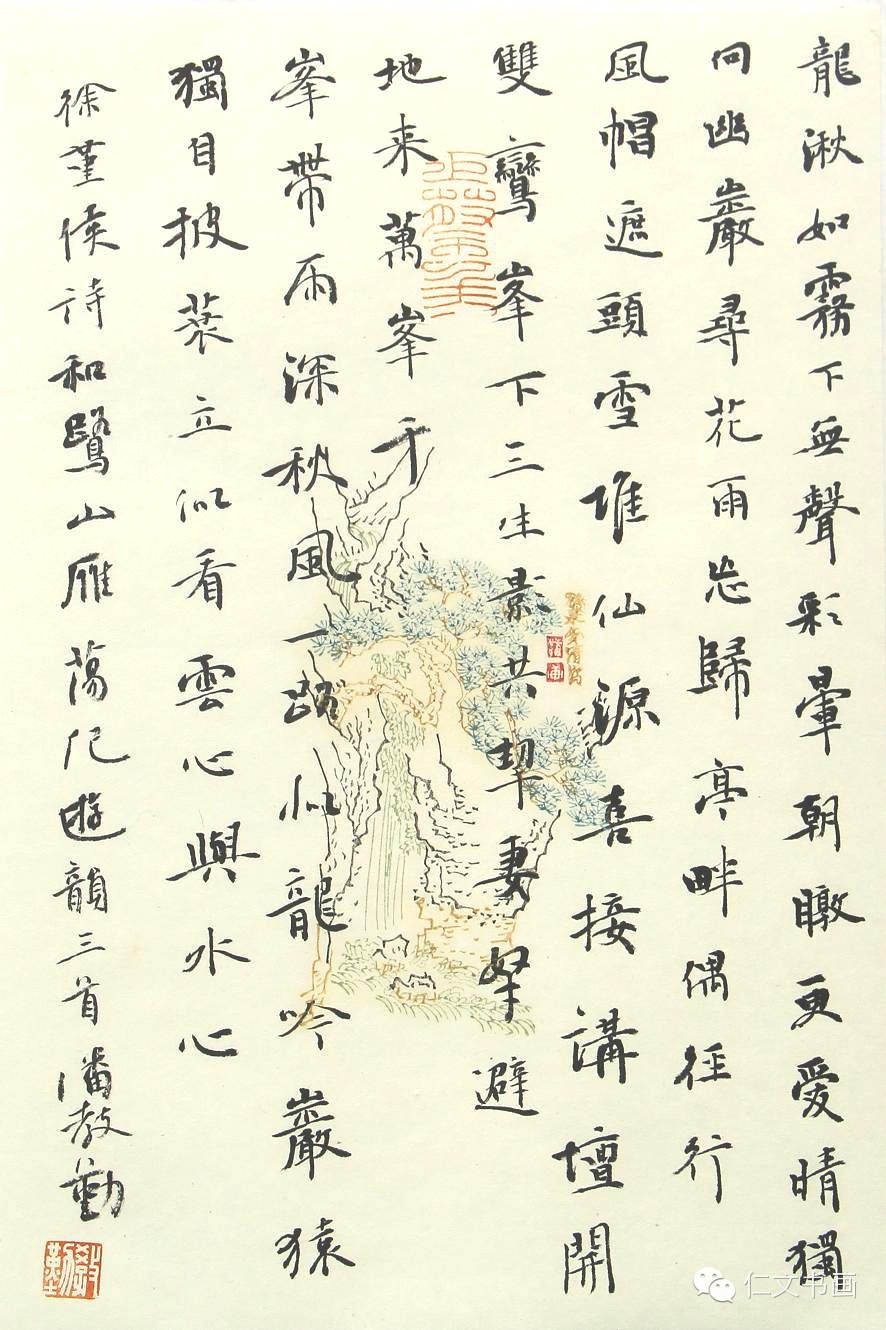 龍湫如霧下無聲彩暈朝暾更愛晴獨
向幽巖尋花雨忘歸亭畔偶徑行
風帽遮頭雪堆仙源喜接講壇開
雙鸞峯下三生影共挈妻孥避
地来萬峯千
峯帶雨深秋風一路似龍吟巖猿
獨自披蓑立似看雲心與水心
徐堇侯詩和鷺山雁蕩紀遊韻三首潘教勤
仁文书画